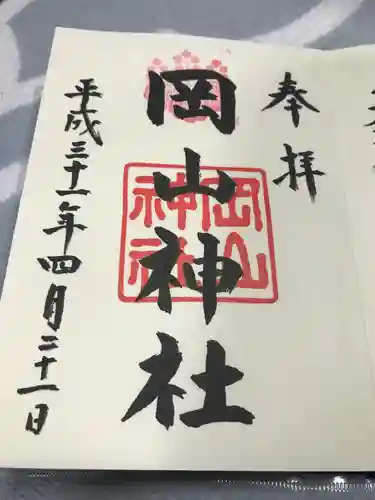 奉拝
岡山神社
岡山神社
平成三十一年四月二十一日